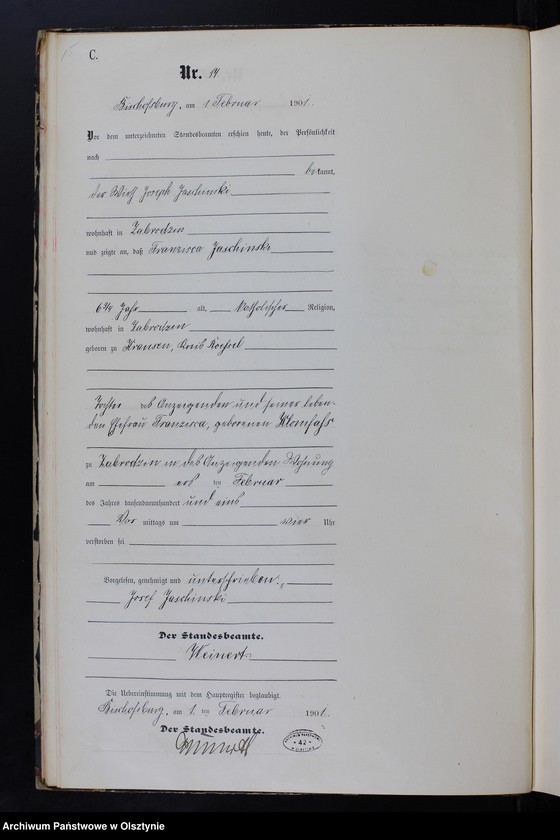 C.
Nr. 14
Bischofsburg, am 1 Februar 1901.
Vor dem unterzeichneten Standesbeamten erschien heute, der Persönlichkeit
nach
bekannt,
der Wirth Joseph Jaschinski
wohnhaft in Zabrodzen
und zeigte an, daß Franzisca Jaschinski
6¾ Jahr alt, katholischer Religion,
wohnhaft in Zabrodzen
geboren zu Krausen, Kreis Roessel
Tochter des Anzeigenden und seiner leben-
den Ehefrau Franzisca, geborenen Klomfahs
zu Zabrodzen in des Anzeigenden Wohnung
am ersten Februar
des Jahres tausendneunhundert und eins
Vor mittags um vier Uhr
verstorben sei
Vorgelesen, genehmigt und unterschrieben.
Josef Jaschinski
Der Standesbeamte.
Weinert
Die Uebereinstimmung mit dem Hauptregister beglaubigt
Bischofsburg, am 1. ten Februar 1901.
Der Standesbeamte.
42
Archiwum Państwowe w Olsztynie